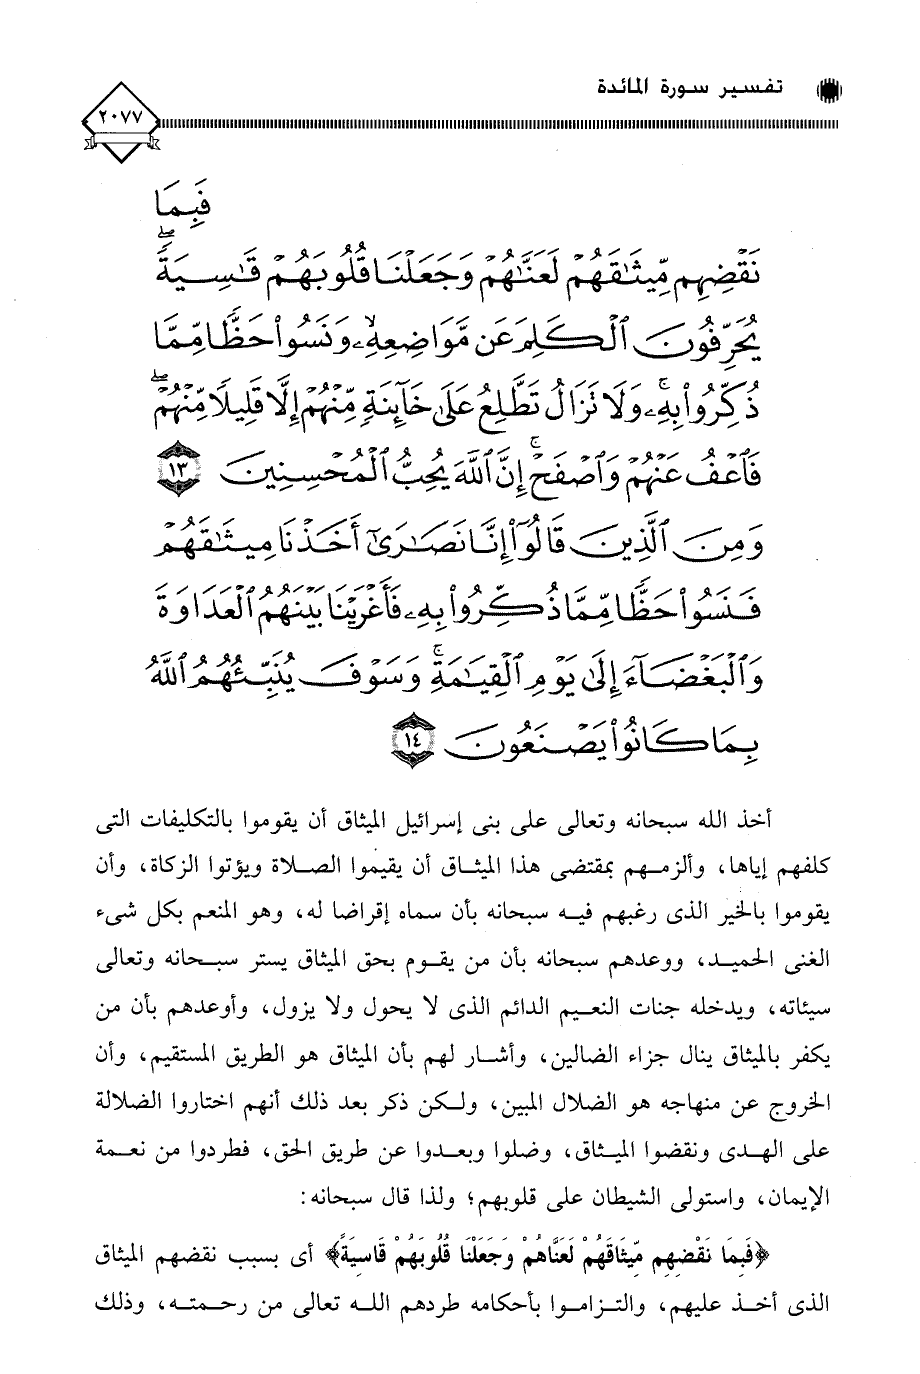 تفسير سورة المائدة
٢٠٧٧
فَبِمَا
نَقْضِهِم مِّيثَٰقَهُمْ لَعَنَّٰهُمْ وَجَعَلْنَا قُلُوبَهُمْ قَٰسِيَةً ۖ
يُحَرِّفُونَ ٱلْكَلِمَ عَن مَّوَاضِعِهِۦ ۙ وَنَسُوا۟ حَظًّا مِّمَّا
ذُكِّرُوا۟ بِهِۦ ۚ وَلَا تَزَالُ تَطَّلِعُ عَلَىٰ خَآئِنَةٍ مِّنْهُمْ إِلَّا قَلِيلًا مِّنْهُمْ ۖ
فَٱعْفُ عَنْهُمْ وَٱصْفَحْ ۚ إِنَّ ٱللَّهَ يُحِبُّ ٱلْمُحْسِنِينَ ١٣
وَمِنَ ٱلَّذِينَ قَالُوٓا۟ إِنَّا نَصَٰرَىٰٓ أَخَذْنَا مِيثَٰقَهُمْ
فَنَسُوا۟ حَظًّا مِّمَّا ذُكِّرُوا۟ بِهِۦ فَأَغْرَيْنَا بَيْنَهُمُ ٱلْعَدَاوَةَ
وَٱلْبَغْضَآءَ إِلَىٰ يَوْمِ ٱلْقِيَٰمَةِ ۚ وَسَوْفَ يُنَبِّئُهُمُ ٱللَّهُ
بِمَا كَانُوا۟ يَصْنَعُونَ ١٤
أخذ الله سبحانه وتعالى على بنى إسرائيل الميثاق أن يقوموا بالتكليفات التى
كلفهم إياها، وألزمهم بمقتضى هذا الميثاق أن يقيموا الصلاة ويؤتوا الزكاة، وأن
يقوموا بالخير الذى رغبهم فيه سبحانه بأن سماه إقراضا له، وهو المنعم بكل شىء
الغنى الحميد، ووعدهم سبحانه بأن من يقوم بحق الميثاق يستر سبحانه وتعالى
سيئاته، ويدخله جنات النعيم الدائم الذى لا يحول ولا يزول، وأوعدهم بأن من
يكفر بالميثاق ينال جزاء الضالين، وأشار لهم بأن الميثاق هو الطريق المستقيم، وأن
الخروج عن منهاجه هو الضلال المبين، ولكن ذكر بعد ذلك أنهم اختاروا الضلالة
على الهدى ونقضوا الميثاق، وضلوا وبعدوا عن طريق الحق، فطردوا من نعمة
الإيمان، واستولى الشيطان على قلوبهم؛ ولذا قال سبحانه:
﴿فَبِمَا نَقْضِهِم مِّيثَاقَهُمْ لَعَنَّاهُمْ وَجَعَلْنَا قُلُوبَهُمْ قَاسِيَةً﴾ أى بسبب نقضهم الميثاق
الذى أخذ عليهم، والتزاموا بأحكامه طردهم الله تعالى من رحمته، وذلك